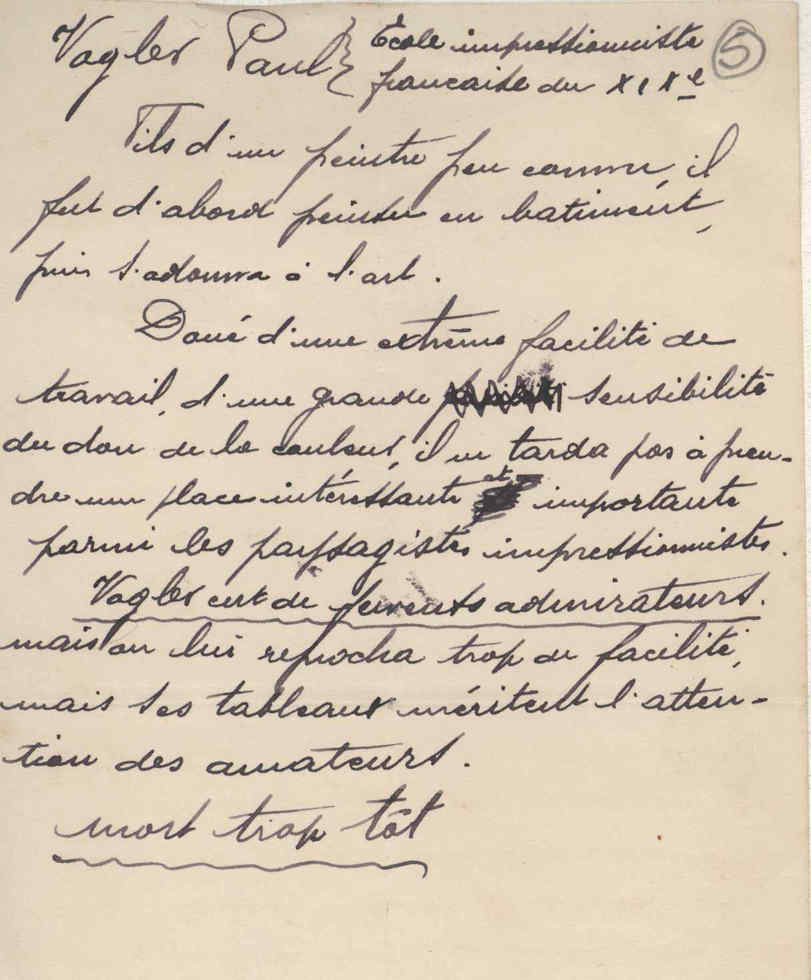 Vogler Paul } École impressionniste 5
française du XIXe
Fils d'un peintre peu connu, il
fut d'abord peintre en batiment,
puis s'adonna à l'art.
Doué d'une extrême facilité de
travail, d'une grande sensibilité
du don de la couleur, il ne tarda pas à pren-
dre une place intéressante et importante
parmi les paysagistes impressionnistes.
Vogler eut de fervents admirateurs.
mais on lui reprocha trop de facilité,
mais ses tableaux méritent l'atten-
tion des amateurs.
mort trop tôt